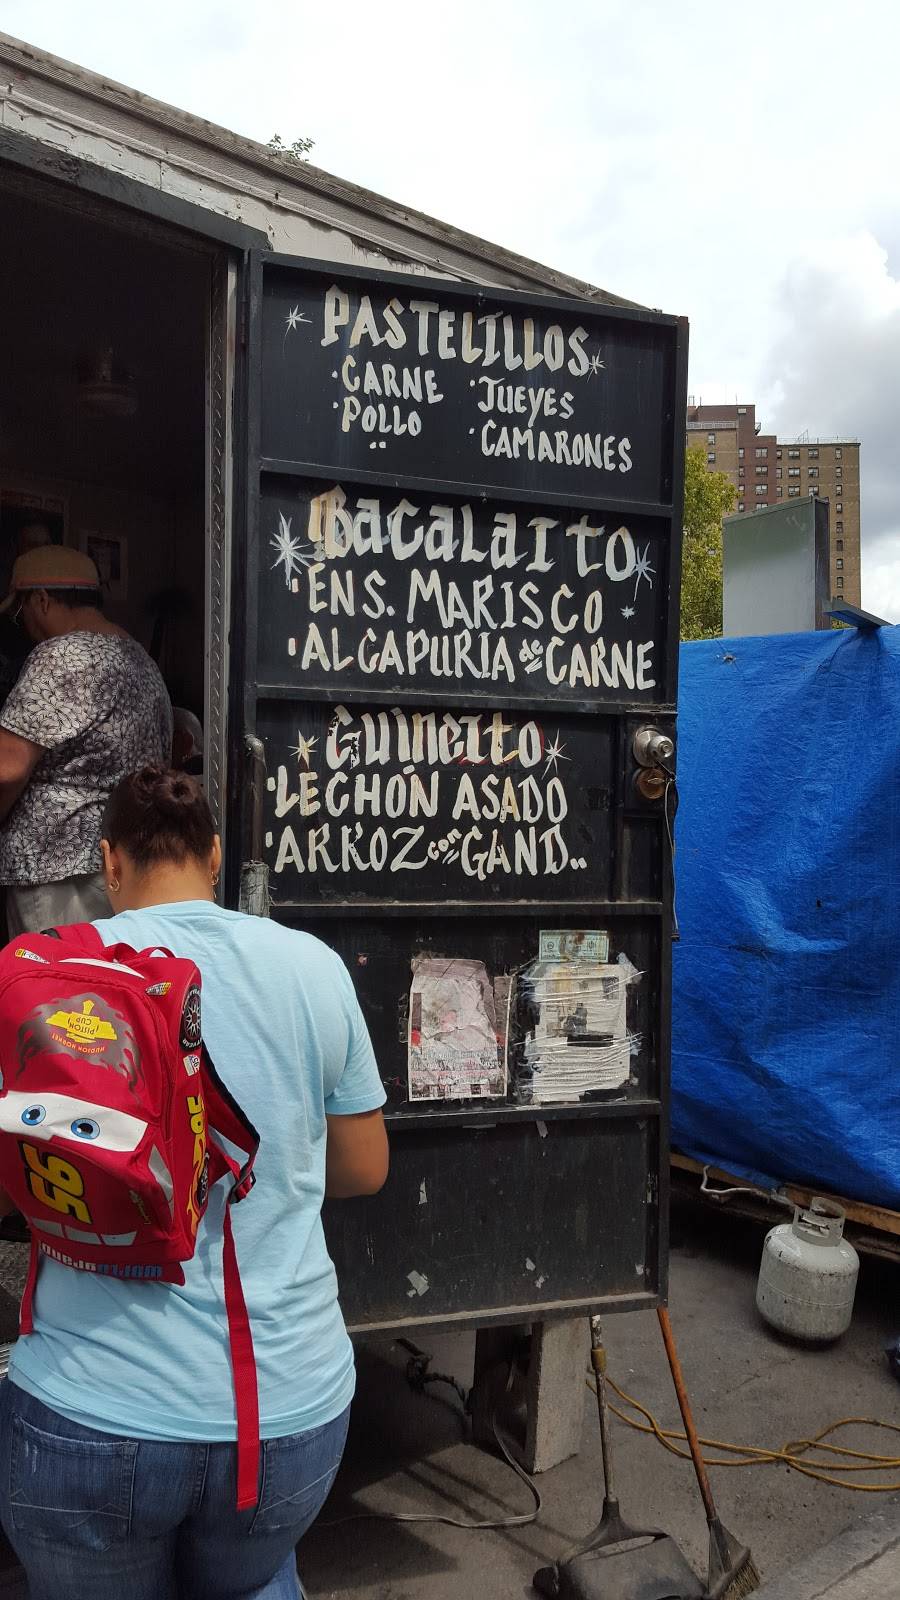 PASTELILLOS
· CARNE
· POLLO
· JUEYES
· CAMARONES
Bacalaito
· ENS. MARISCO
· ALCAPURIA de CARNE
Guineito
· LECHÓN ASADO
· ARROZ con GAND..
PISTON CUP
HUDSON HORNET
95